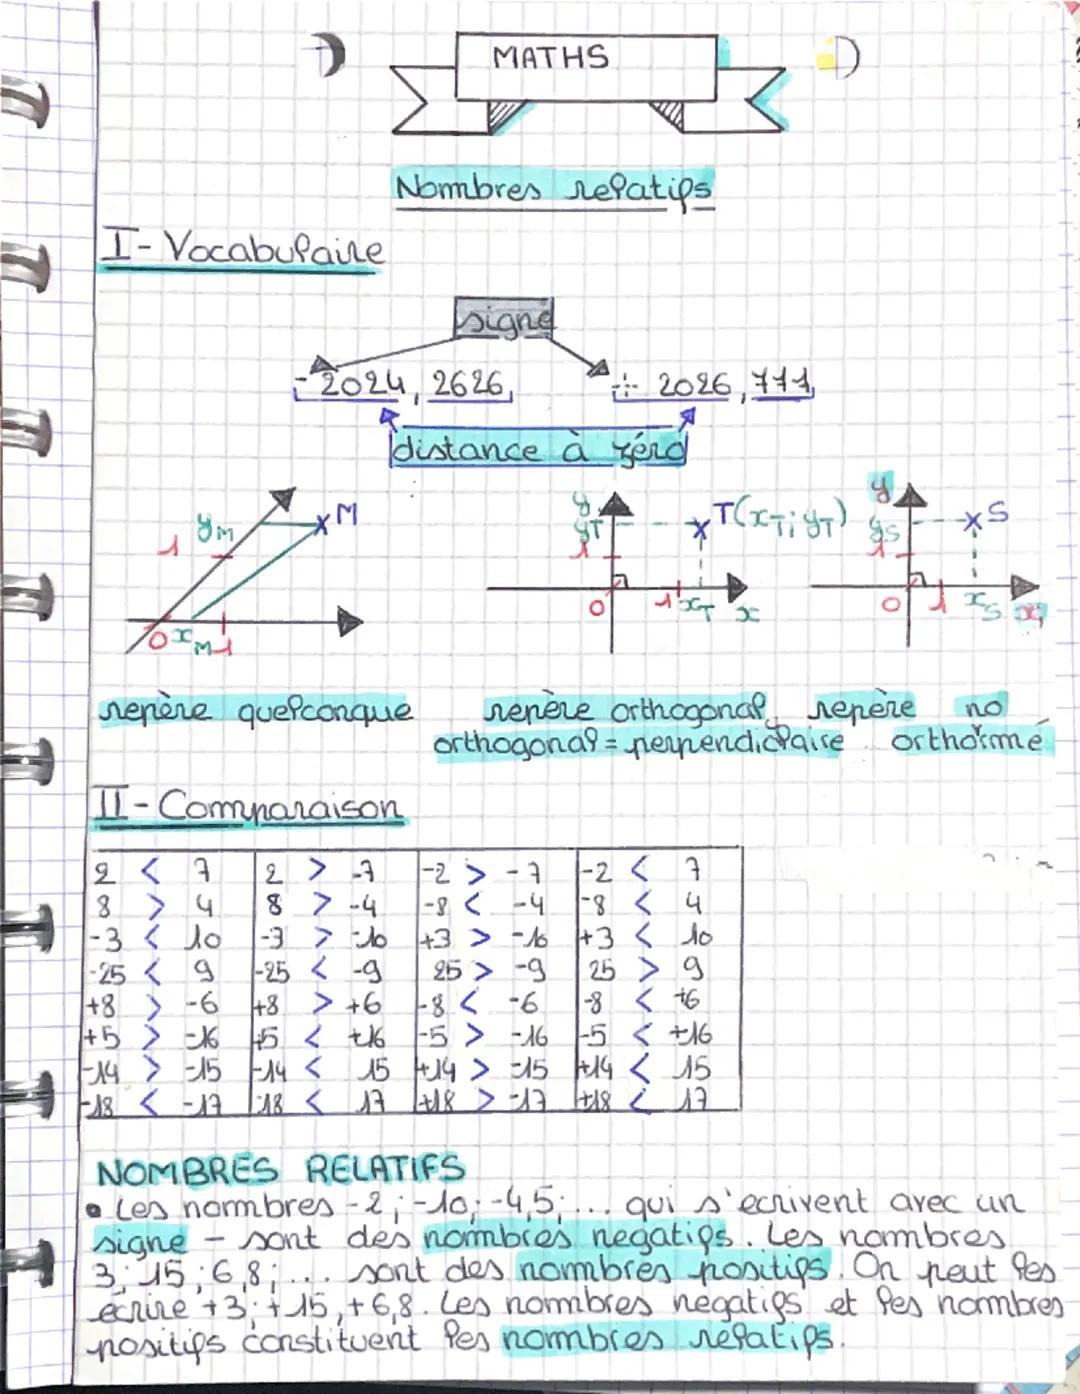 MATHS
Nombres relatifs
I- Vocabulaire
signe
- 2024, 2626
+ 2026, 711
distance à zéro
y y
M T(xT; yT) S
yM yT yS
1 1 1
0 xM 1 0 1 xT x 0 1 xS x
repère quelconque repère orthogonal repère no
orthogonal = perpendiculaire orthormé
II- Comparaison
2 < 7 2 > -7 -2 > -7 -2 < 7
8 > 4 8 > -4 -8 < -4 -8 < 4
-3 < 10 -3 > -10 +3 > -10 +3 < 10
-25 < 9 -25 < -9 25 > -9 25 > 9
+8 > -6 +8 > +6 -8 < -6 -8 < +6
+5 > -16 +5 < +16 -5 > -16 -5 < +16
-14 > -15 -14 < 15 +14 > -15 +14 < 15
-18 < -17 -18 < 17 +18 > -17 +18 < 17
NOMBRES RELATIFS
• Les nombres -2 ; -10 ; -4,5 ; ... qui s'ecrivent avec un
signe - sont des nombres negatifs. Les nombres
3 ; 15 ; 6,8 ; ... sont des nombres positifs. On peut les
ecrire +3 ; +15, +6,8. Les nombres negatifs et les nombres
positifs constituent les nombres relatifs.